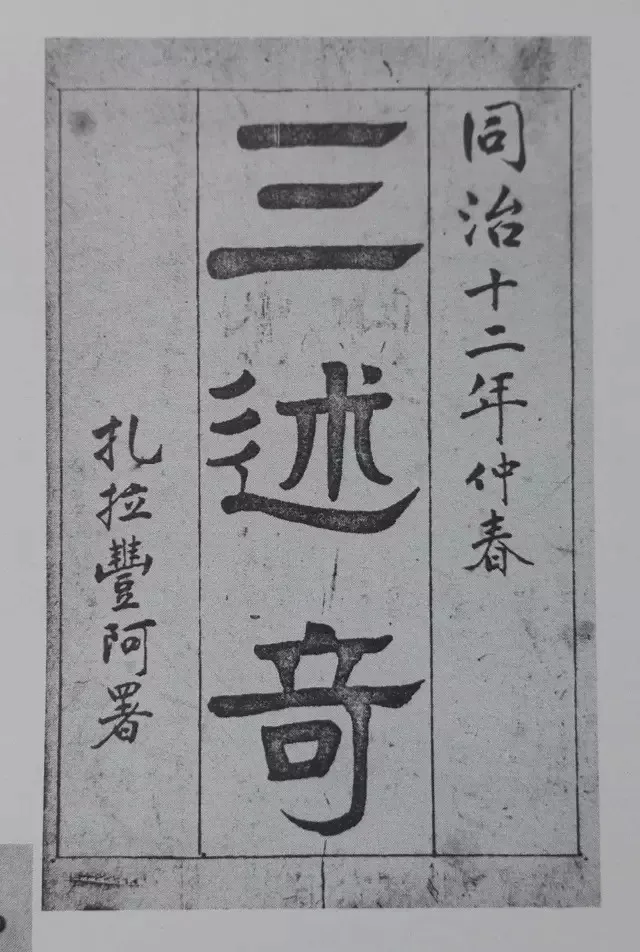 同治十二年仲春
三述奇
扎拉豐阿署